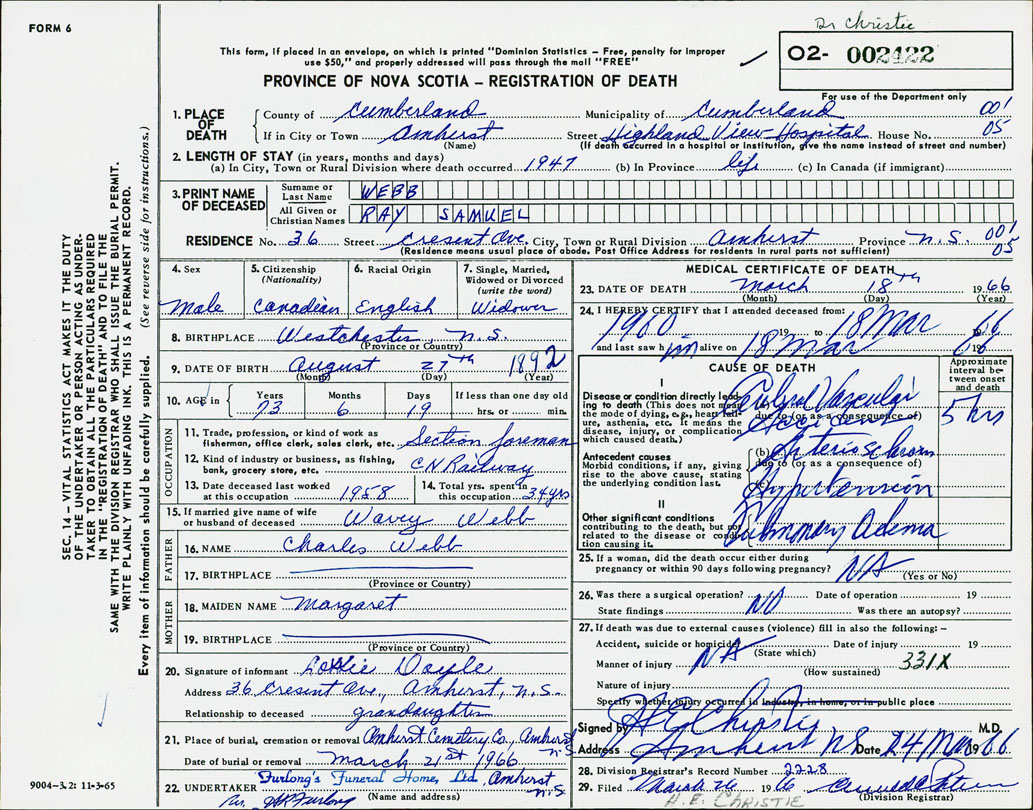 Dr Christie
FORM 6
This form, if placed in an envelope, on which is printed "Dominion Statistics – Free, penalty for improper
use $50," and properly addressed will pass through the mail "FREE"
PROVINCE OF NOVA SCOTIA – REGISTRATION OF DEATH
02- 002422
For use of the Department only
1. PLACE OF DEATH
County of Cumberland Municipality of Cumberland 001
If in City or Town Amherst Street Highland View Hospital House No. 05
(Name) (If death occurred in a hospital or institution, give the name instead of street and number)
2. LENGTH OF STAY (in years, months and days)
(a) In City, Town or Rural Division where death occurred 1947 (b) In Province life (c) In Canada (if immigrant)
3. PRINT NAME OF DECEASED
Surname or Last Name WEBB
All Given or Christian Names RAY SAMUEL
RESIDENCE No. 36 Street Cresent Ave. City, Town or Rural Division Amherst Province N.S. 001 05
(Residence means usual place of abode. Post Office Address for residents in rural parts not sufficient)
4. Sex
Male
5. Citizenship
(Nationality)
Canadian
6. Racial Origin
English
7. Single, Married,
Widowed or Divorced
(write the word)
Widower
8. BIRTHPLACE Westchester N.S.
(Province or Country)
9. DATE OF BIRTH August 27th 1892
(Month) (Day) (Year)
10. AGE in Years Months Days If less than one day old
73 6 19 hrs. or min.
OCCUPATION
11. Trade, profession or kind of work as
fisherman, office clerk, sales clerk, etc. Section foreman
12. Kind of industry or business, as fishing,
bank, grocery store, etc. CN Railway
13. Date deceased last worked
at this occupation 1958
14. Total yrs. spent in
this occupation 34 yrs
15. If married give name of wife
or husband of deceased Wavey Webb
FATHER
16. NAME Charles Webb
17. BIRTHPLACE
(Province or Country)
MOTHER
18. MAIDEN NAME Margaret
19. BIRTHPLACE
(Province or Country)
20. Signature of informant Doyle
Address 36 Cresent Ave., Amherst, N.S.
Relationship to deceased grandaughter
21. Place of burial, cremation or removal Amherst Cemetery Co., Amherst N.S.
Date of burial or removal March 21st 1966
22. UNDERTAKER Furlong's Funeral Home, Ltd, Amherst N.S.
(Name and address)
Per. Furlong
MEDICAL CERTIFICATE OF DEATH
23. DATE OF DEATH March 18th 1966
(Month) (Day) (Year)
24. I HEREBY CERTIFY that I attended deceased from:
1960 19 to 18 Mar 66
and last saw him alive on 18 Mar
CAUSE OF DEATH
Approximate
interval be-
tween onset
and death
I
Disease or condition directly lead-
ing to death (This does not mean
the mode of dying, e.g., heart fail-
ure, asthenia, etc. It means the
disease, injury, or complication
which caused death.)
Cerebral Vascular
Accident
due to (or as a consequence of)
5 hrs
Antecedent causes
Morbid conditions, if any, giving
rise to the above cause, stating
the underlying condition last.
(b) Arteriosclerosis
due to (or as a consequence of)
(c) Hypertension
II
Other significant conditions
contributing to the death, but not
related to the disease or condi-
tion causing it.
Pulmonary Adema
25. If a woman, did the death occur either during
pregnancy or within 90 days following pregnancy? NA
(Yes or No)
26. Was there a surgical operation? NO Date of operation 19
State findings Was there an autopsy?
27. If death was due to external causes (violence) fill in also the following:–
Accident, suicide or homicide NA Date of injury 19
(State which)
Manner of injury 331X
(How sustained)
Nature of injury
Specify whether injury occurred in industry, in home, or in public place
Signed by H E Christy M.D.
Address Amherst NS Date 24 Mar 1966
28. Division Registrar's Record Number 2228
29. Filed March 26 1966
(Division Registrar)
H. E. CHRISTIE
SEC. 14 – VITAL STATISTICS ACT MAKES IT THE DUTY
OF THE UNDERTAKER OR PERSON ACTING AS UNDER-
TAKER TO OBTAIN ALL THE PARTICULARS REQUIRED
IN THE "REGISTRATION OF DEATH" AND TO FILE THE
SAME WITH THE DIVISION REGISTRAR WHO SHALL ISSUE THE BURIAL PERMIT.
WRITE PLAINLY WITH UNFADING INK. THIS IS A PERMANENT RECORD.
Every item of information should be carefully supplied. (See reverse side for instructions.)
9004–3.2: 11-3-65